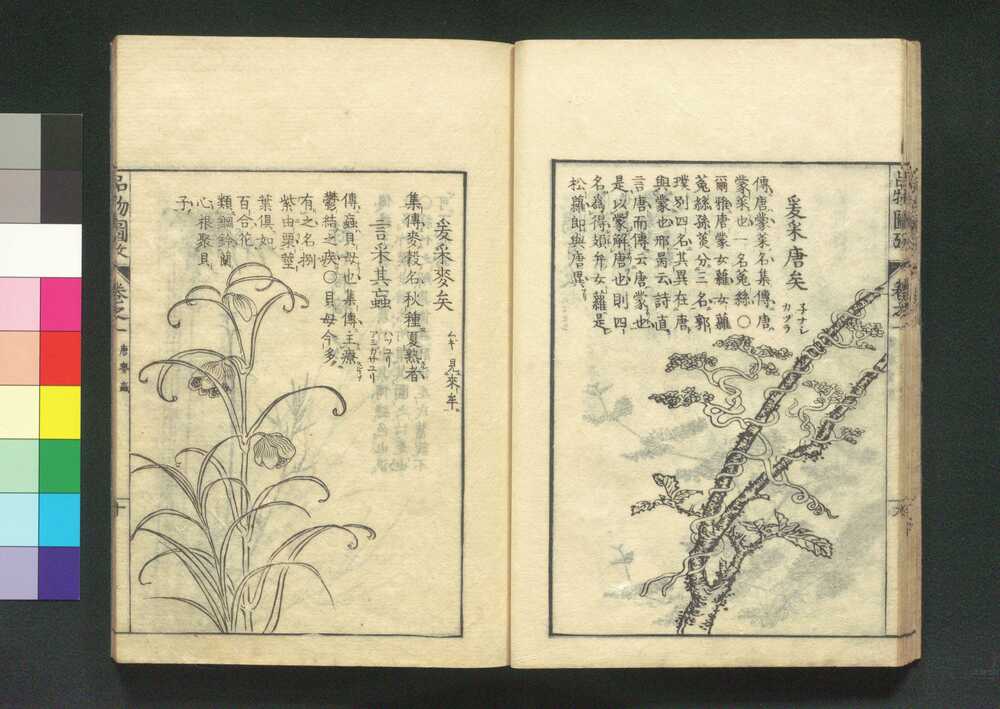 爰采唐矣
ネナシ
カヅラ
傳、唐蒙菜名、集傳、唐、
蒙菜也一名兔絲○
爾雅唐蒙女蘿女蘿
菟絲孫炎分三名郭
璞列四名其異在唐
與蒙也邢昺云詩直
言唐而傳云唐蒙也
是以蒙解唐也則四
名為得矣幷女蘿是
松蘿即與唐異
爰采麥矣
ムギ 見來牟
集傳麥穀名秋種夏熟者
言采其蝱
ハヽユリ
アミガサユリ
傳蝱貝母也集傳主療
鬱結之疾○貝母今多
有之名捌
紫由栗莖
葉俱如
百合花
類鐵鈴蘭
心根聚貝
子
品物圖攷
卷之一
唐 麥 蝱
十